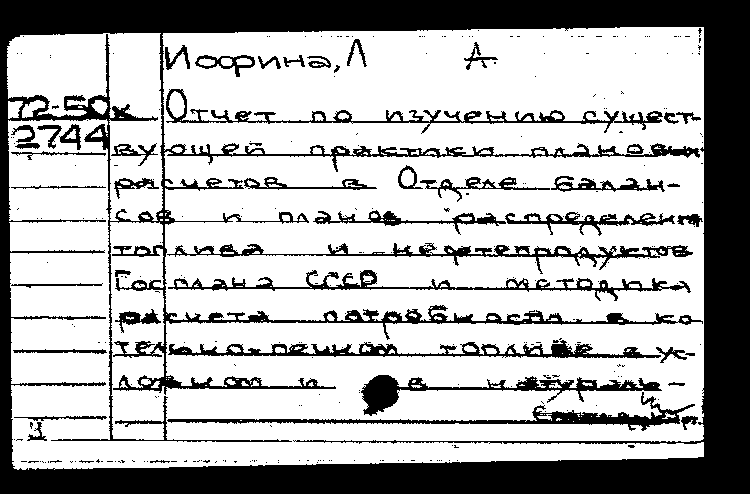 Иофрина, Л А
72-50к Отчет по изучению сущест-
2744 вующей практики плановых
расчетов в Отделе балан-
сов и планов распределения
топлива и нефтепродуктов
Госплана СССР и методика
расчета потребности в ко
тельно-печном топливе в ус-
ловном и в натураль-